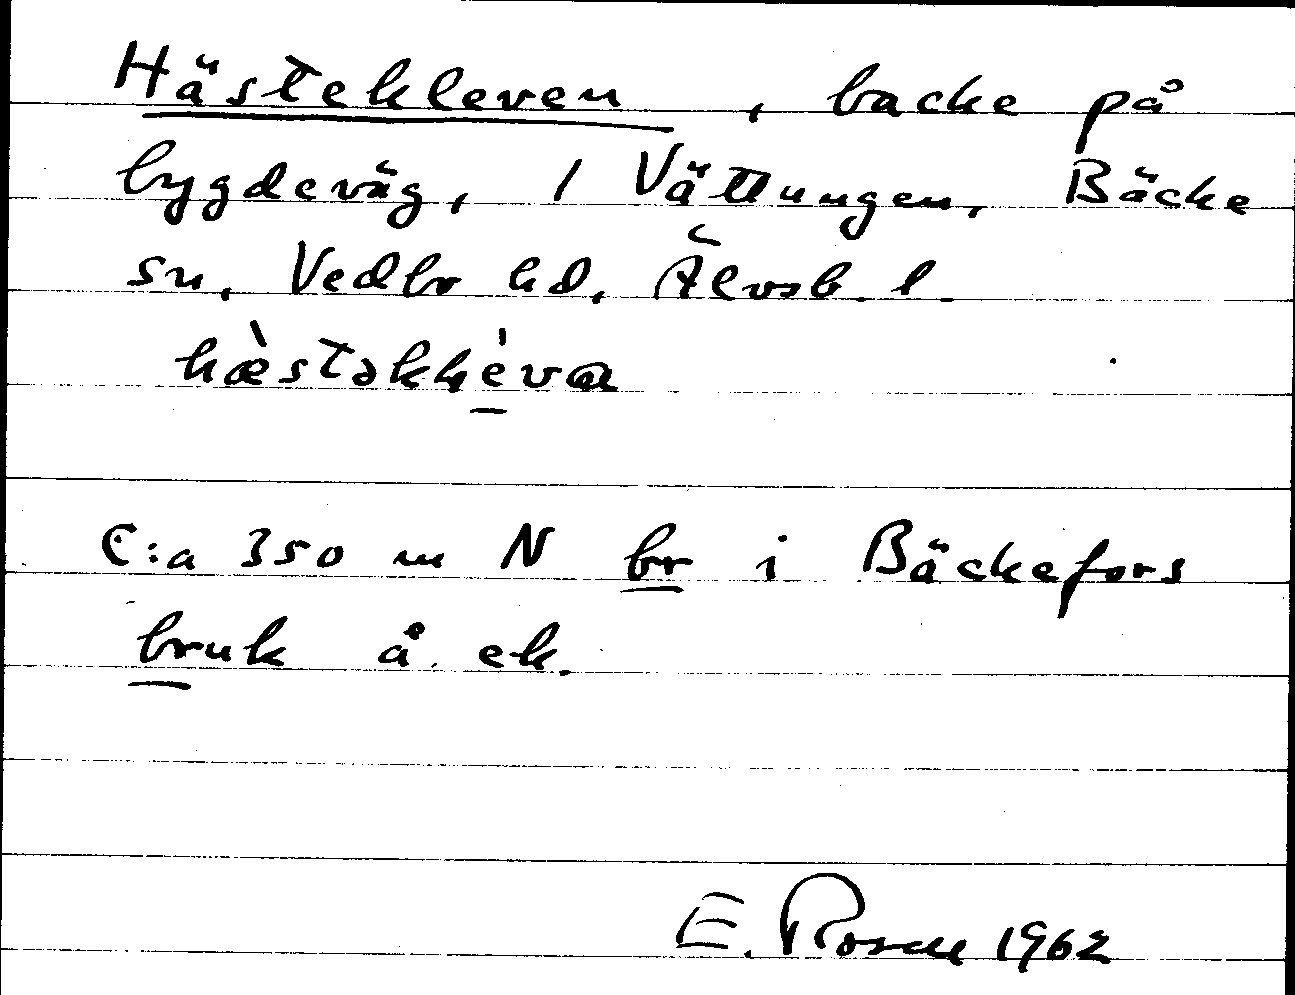 Hästekleven, backe på
bygdeväg, 1 Vättungen, Bäcke
sn, Vedbo hd, Älvsb. l.
C:a 350 m N br i Bäckefors
bruk å ek.
E. Rosell 1962